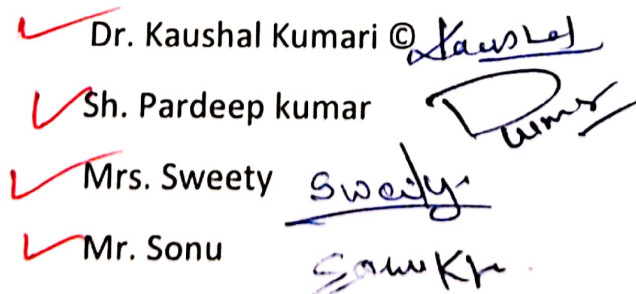 Dr. Kaushal Kumari © Kaushal
Sh. Pardeep kumar
Mrs. Sweety Sweety
Mr. Sonu Sonu Kr.